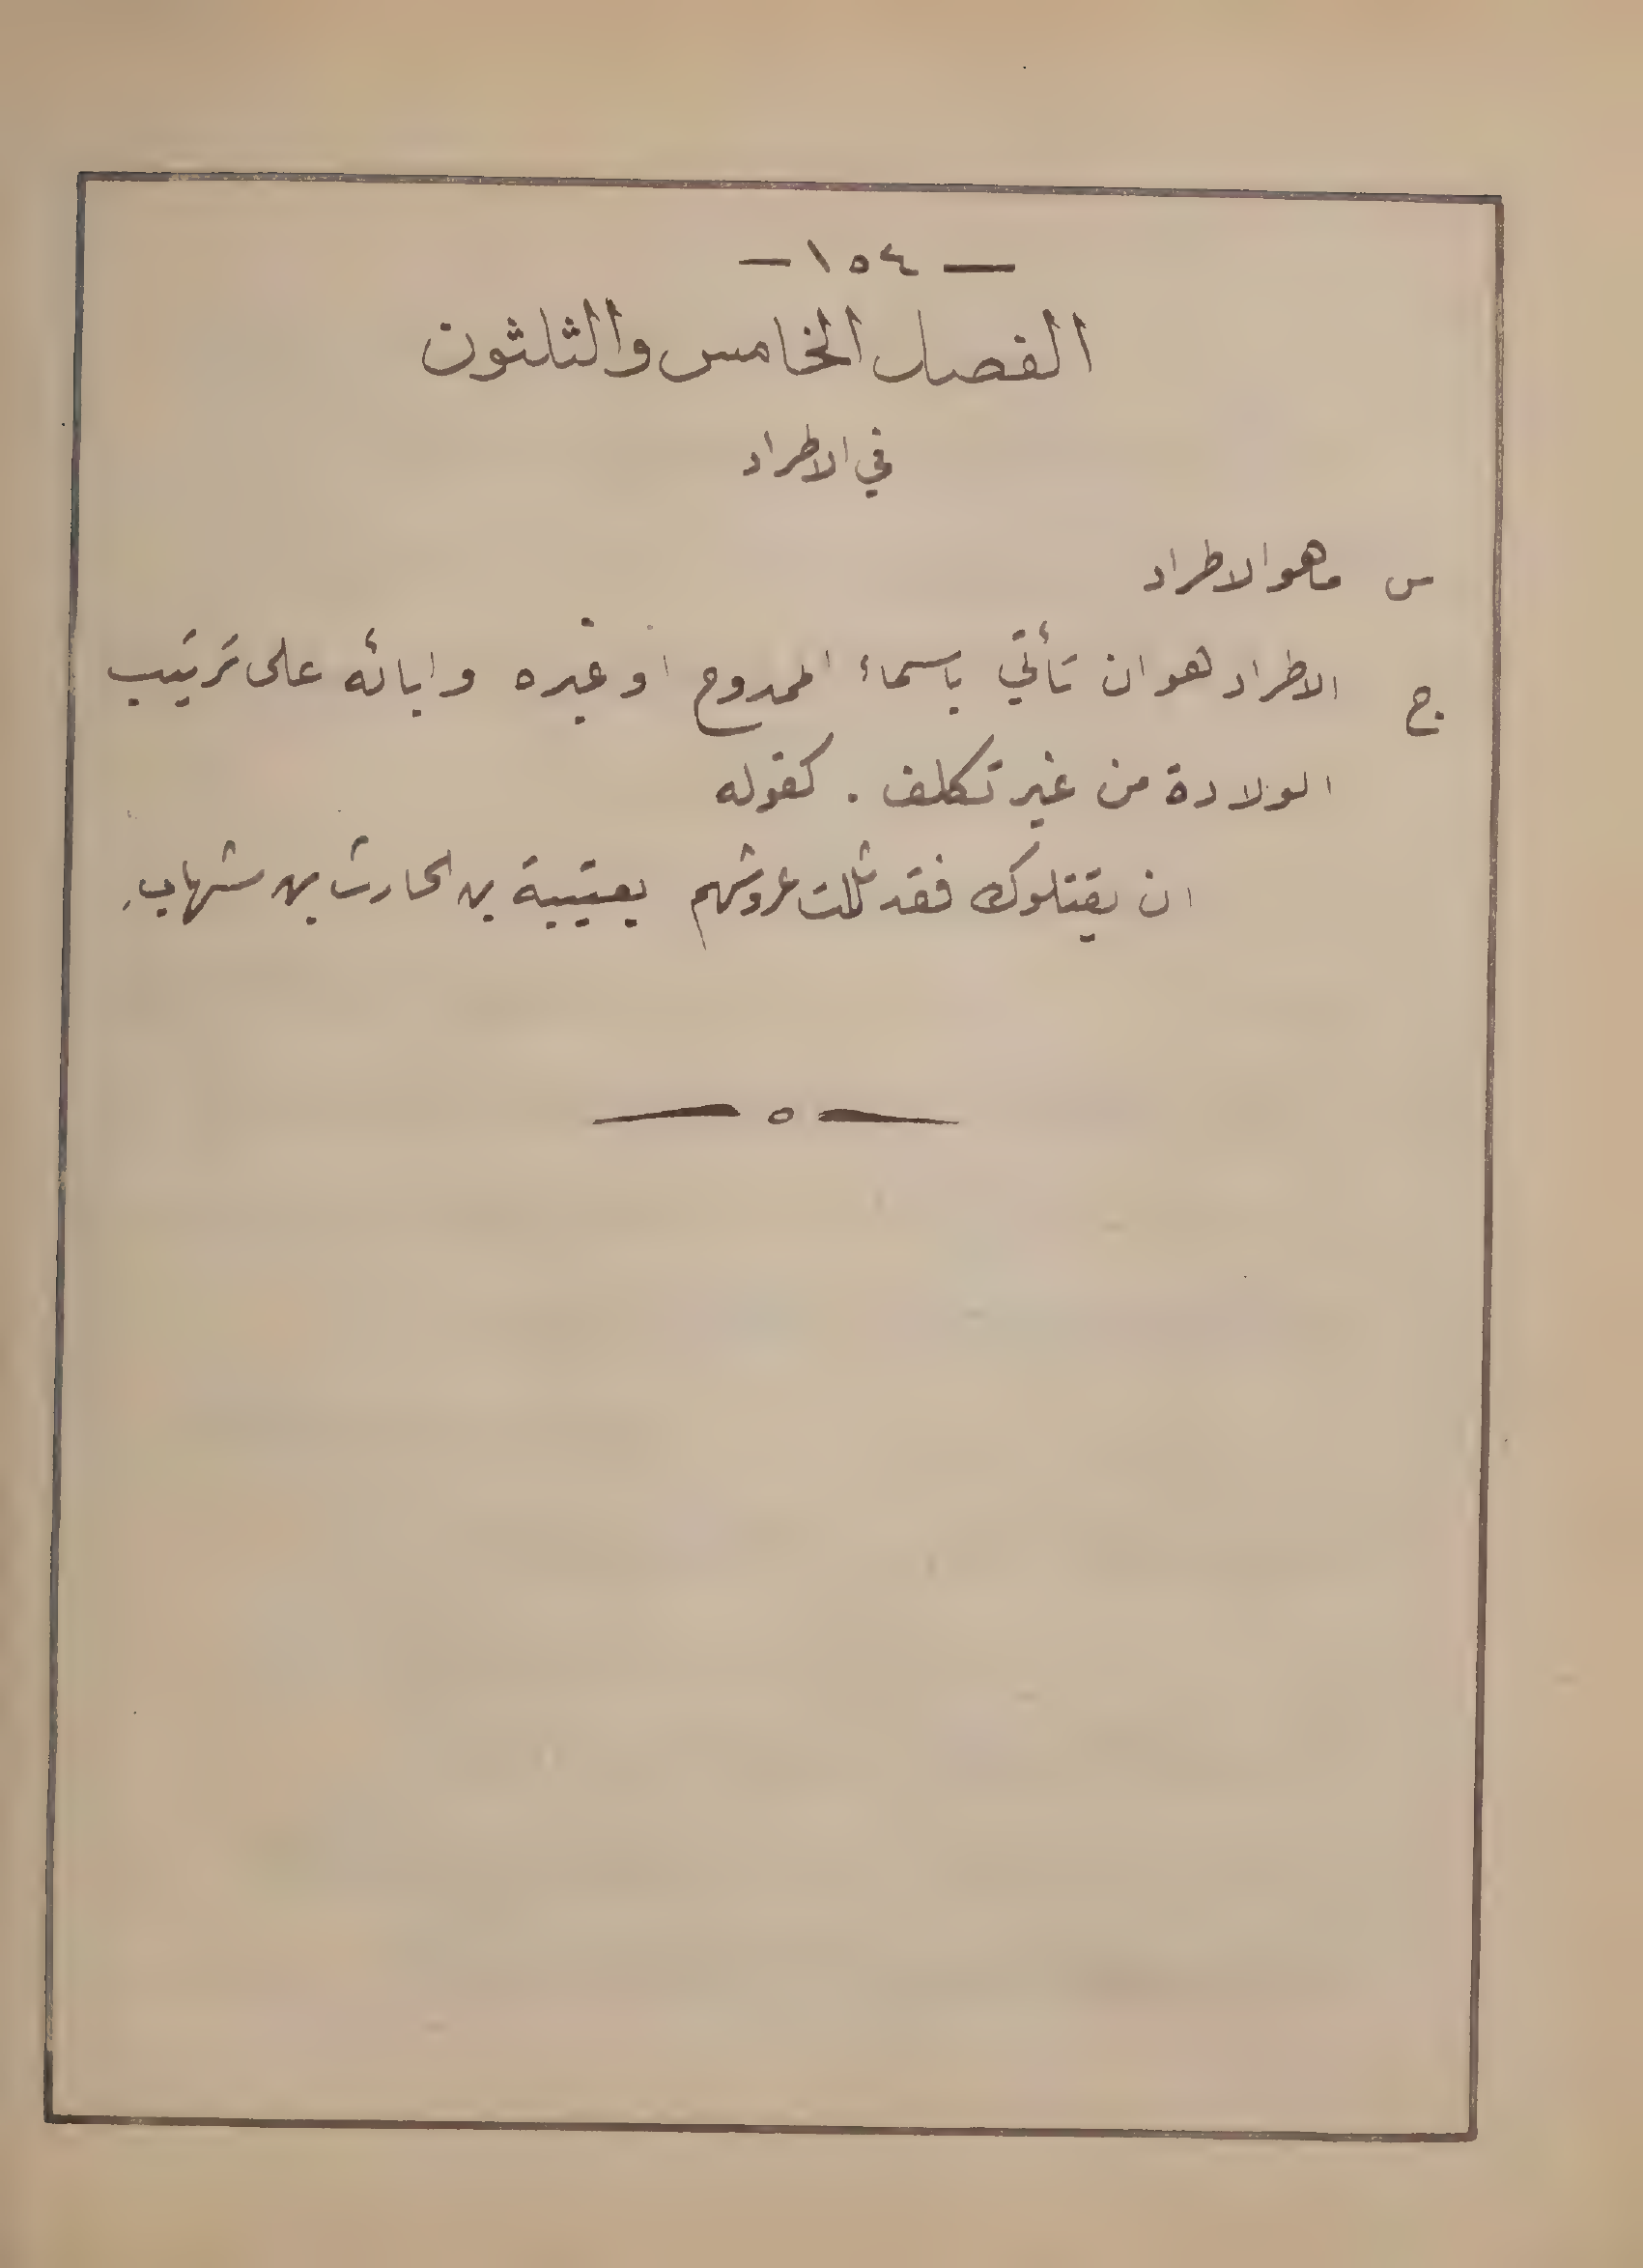 — ١٥٤ —
الفصل الخامس والثلثون
في الاطراد
س ما هو الاطراد
ج الاطراد هو ان تأتي باسماء الممدوح او غيره وابائه على ترتيب
الولادة من غير تكلف . كقوله
ان يقتلوك فقد ثللت عروشهم بعتيبة بن الحارث بن شهاب